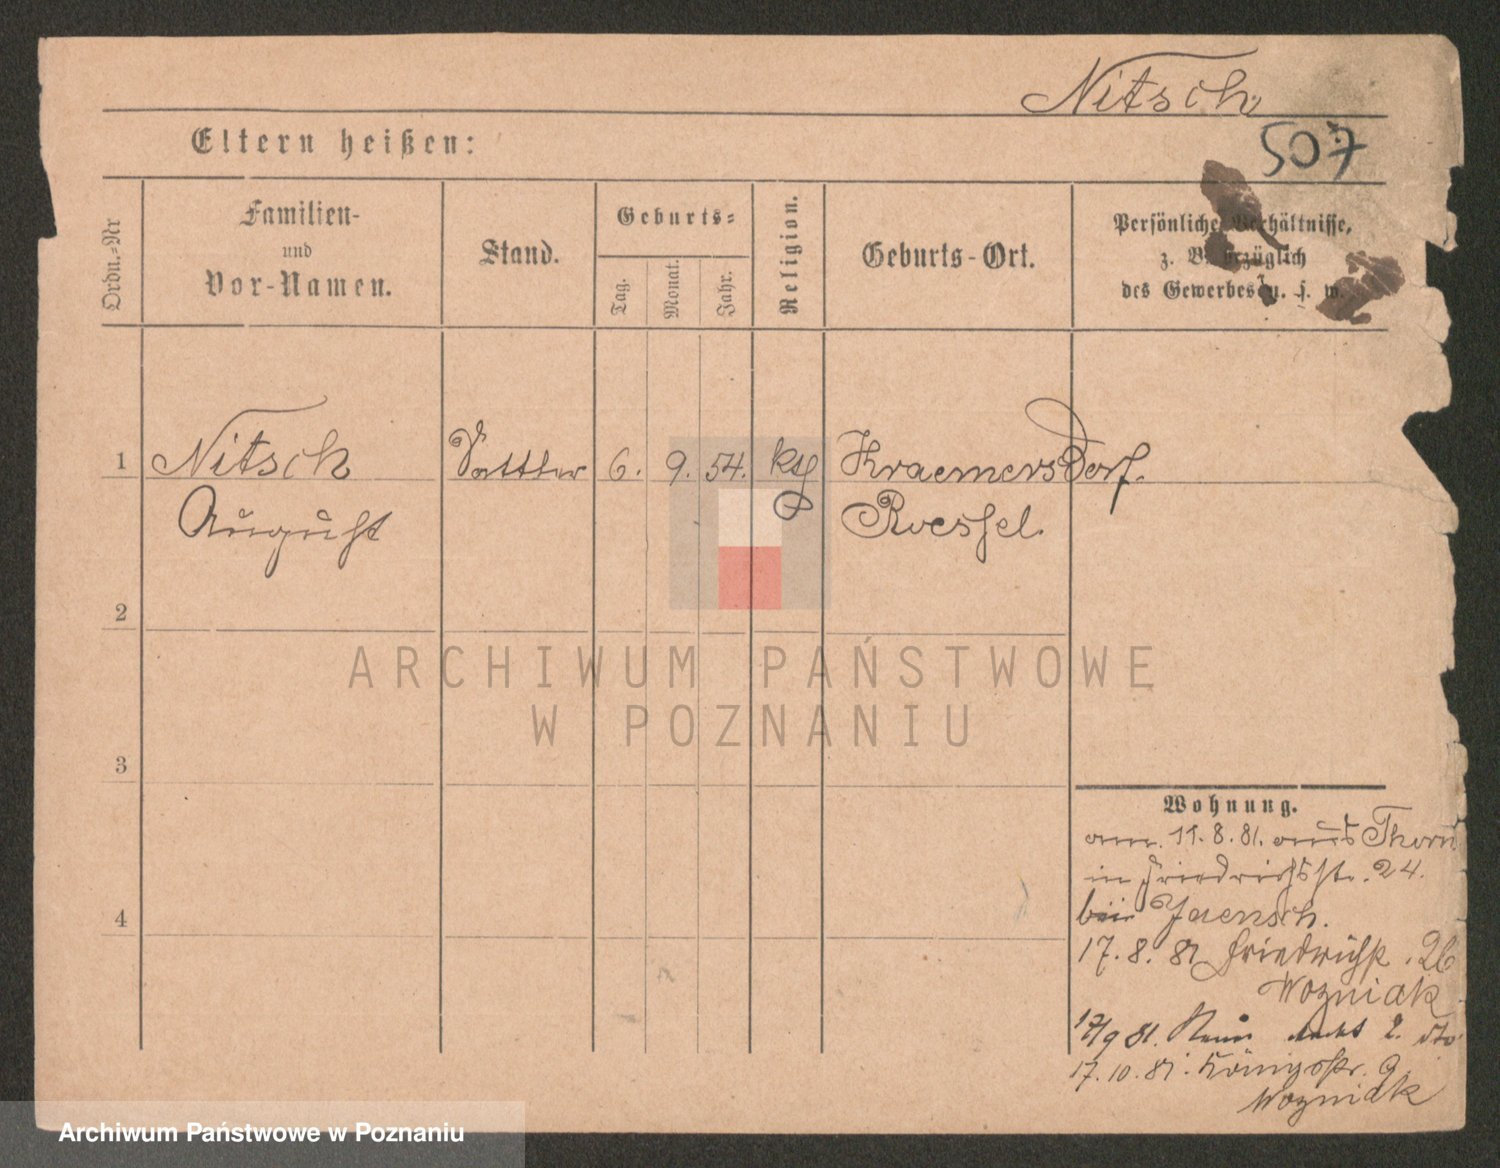 Nitsch
507
Eltern heißen:
Ordn.-Nr
Familien-
und
Vor-Namen.
Stand.
Geburts-
Tag.
Monat.
Jahr.
Religion.
Geburts-Ort.
Persönliche Verhältnisse,
z. B. bezüglich
des Gewerbes u. s. w.
1 Nitsch Sattler 6. 9. 54. ktl Kraemersdorf.
August Roessel.
2
3
4
ARCHIWUM PAŃSTWOWE
W POZNANIU
Wohnung.
am. 11.8.81. aus Thorn
in Friedrichsstr. 24.
bei Jaensch.
17.8.81 Friedrichstr. 26
Wozniak
17/9 81. 2. dto
17.10.81. Königsstr. 9.
Wozniak
Archiwum Państwowe w Poznaniu